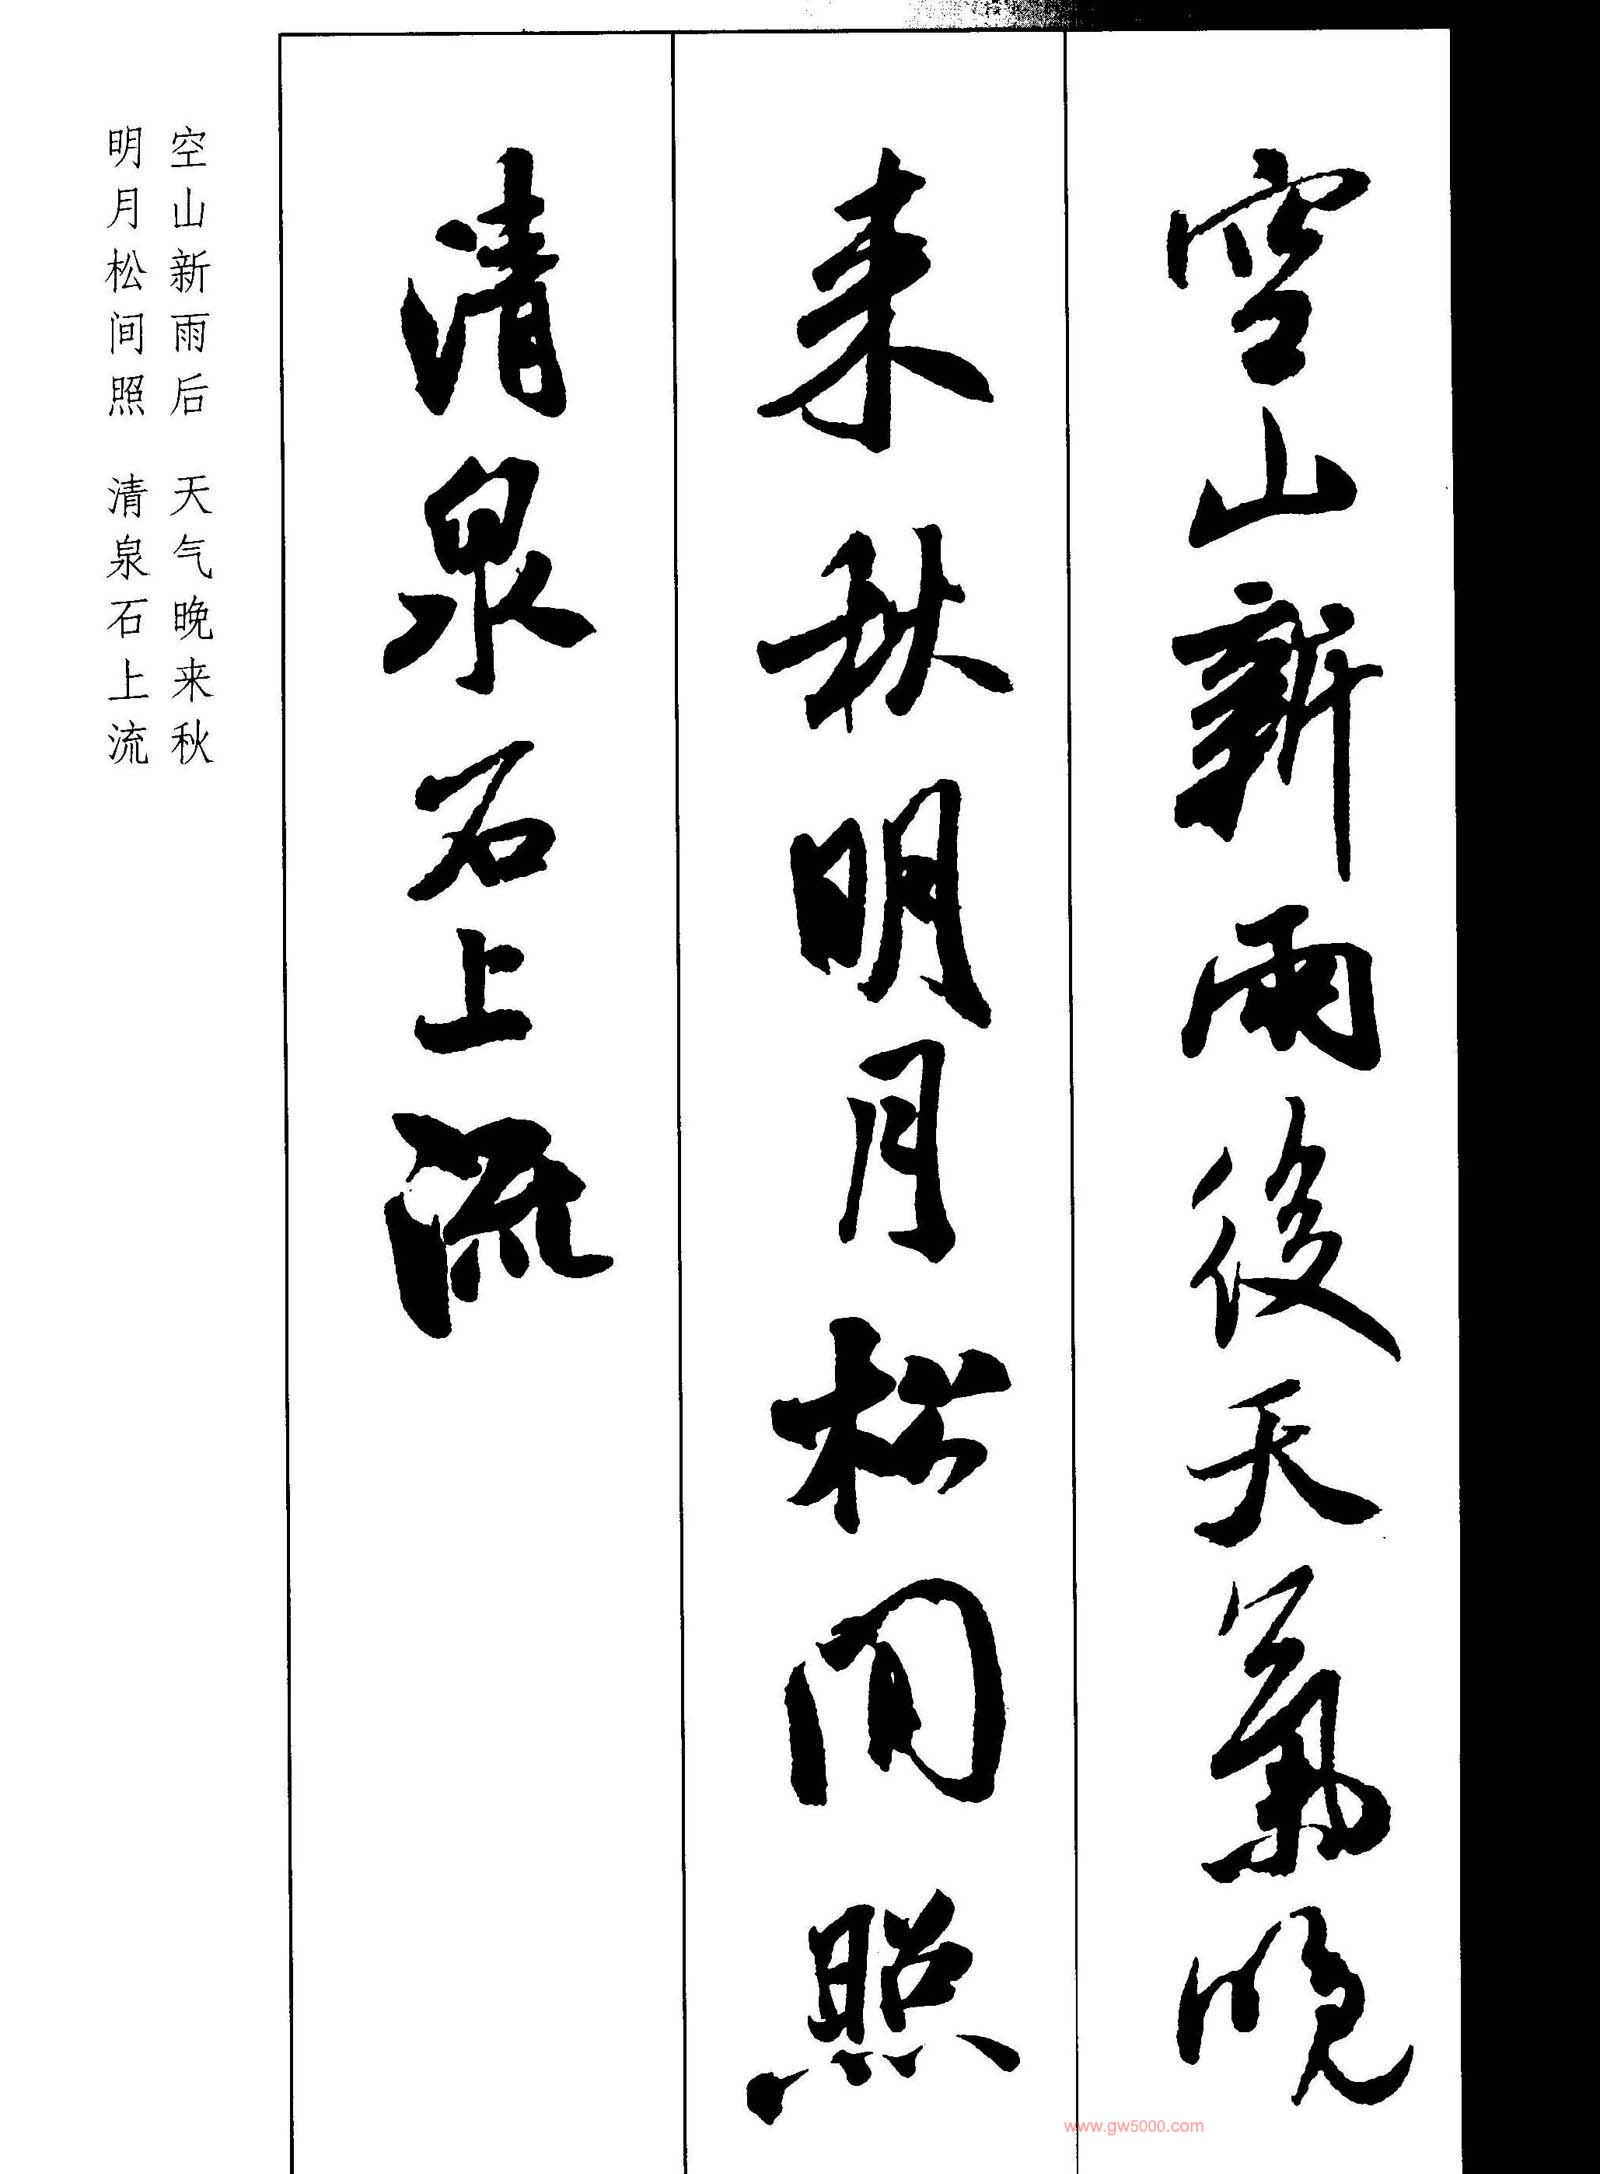 空山新雨後天氣晚
来秋明月松间照
清泉石上流
空山新雨后 天气晚来秋
明月松间照 清泉石上流
www.gw5000.com